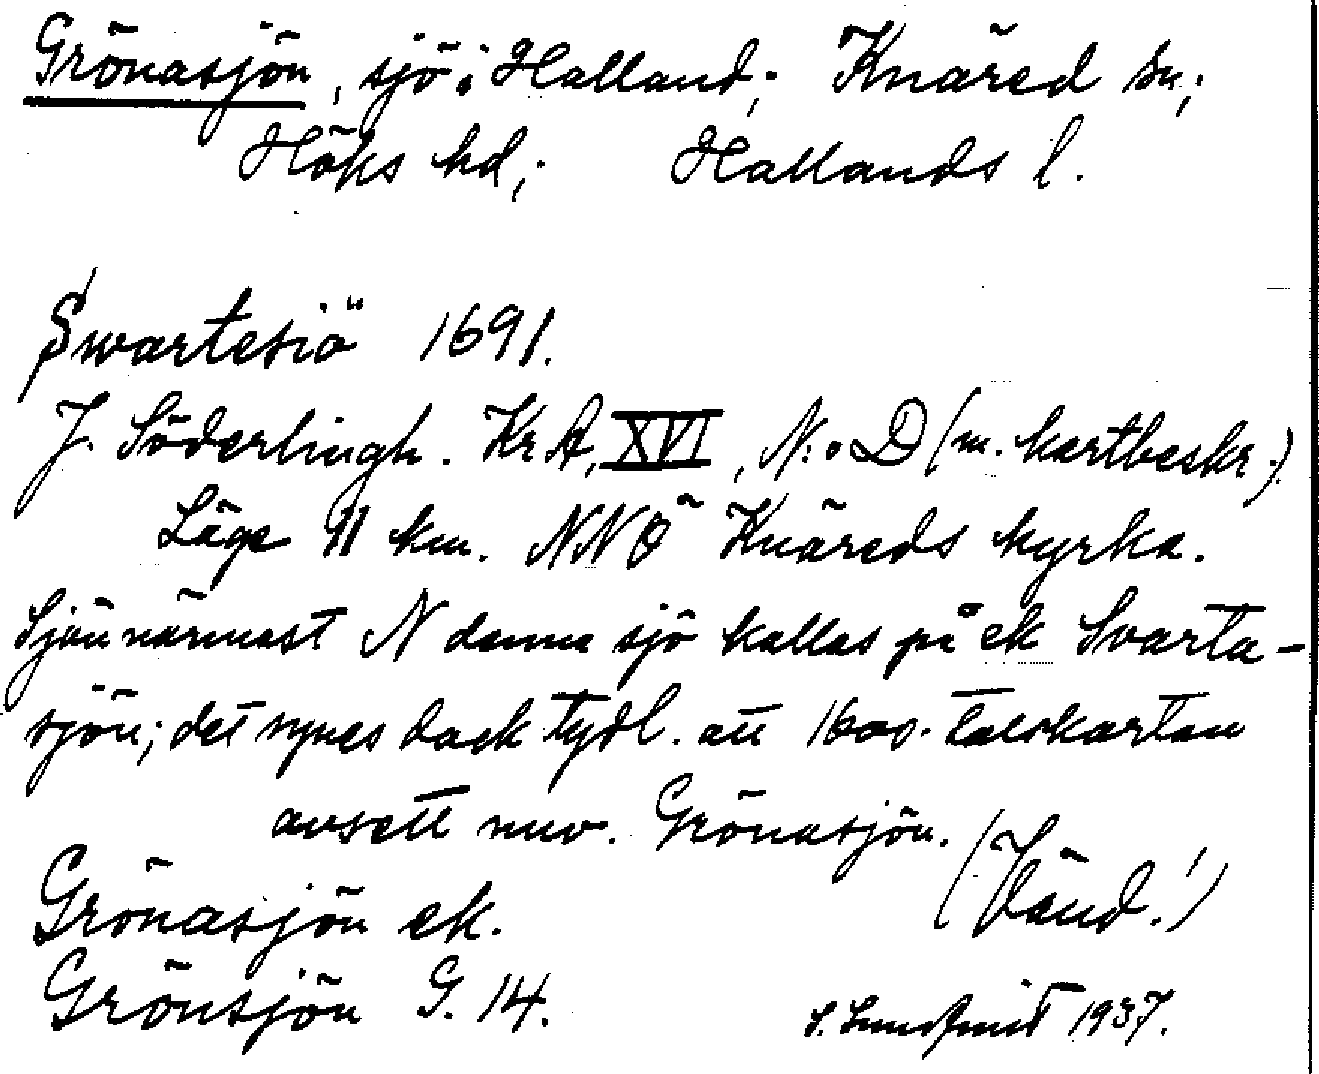 Grönasjön, sjö i Halland; Knäred sn;
Höks hd; Hallands l.
Swartesiö 1691.
J. Söderlingh. Kr.A, XVI, N:o D (m. kartbeskr.)
Läge 11 km. NNÖ Knäreds kyrka.
Sjön närmast N denna sjö kallas på ek Svarta-
sjön; det synes dock tydl. att 1600-talskartan
avsett nuv. Grönasjön.
(Vänd!)
Grönasjön ek.
Grönsjön G. 14.
S. Lundqvist 1937.